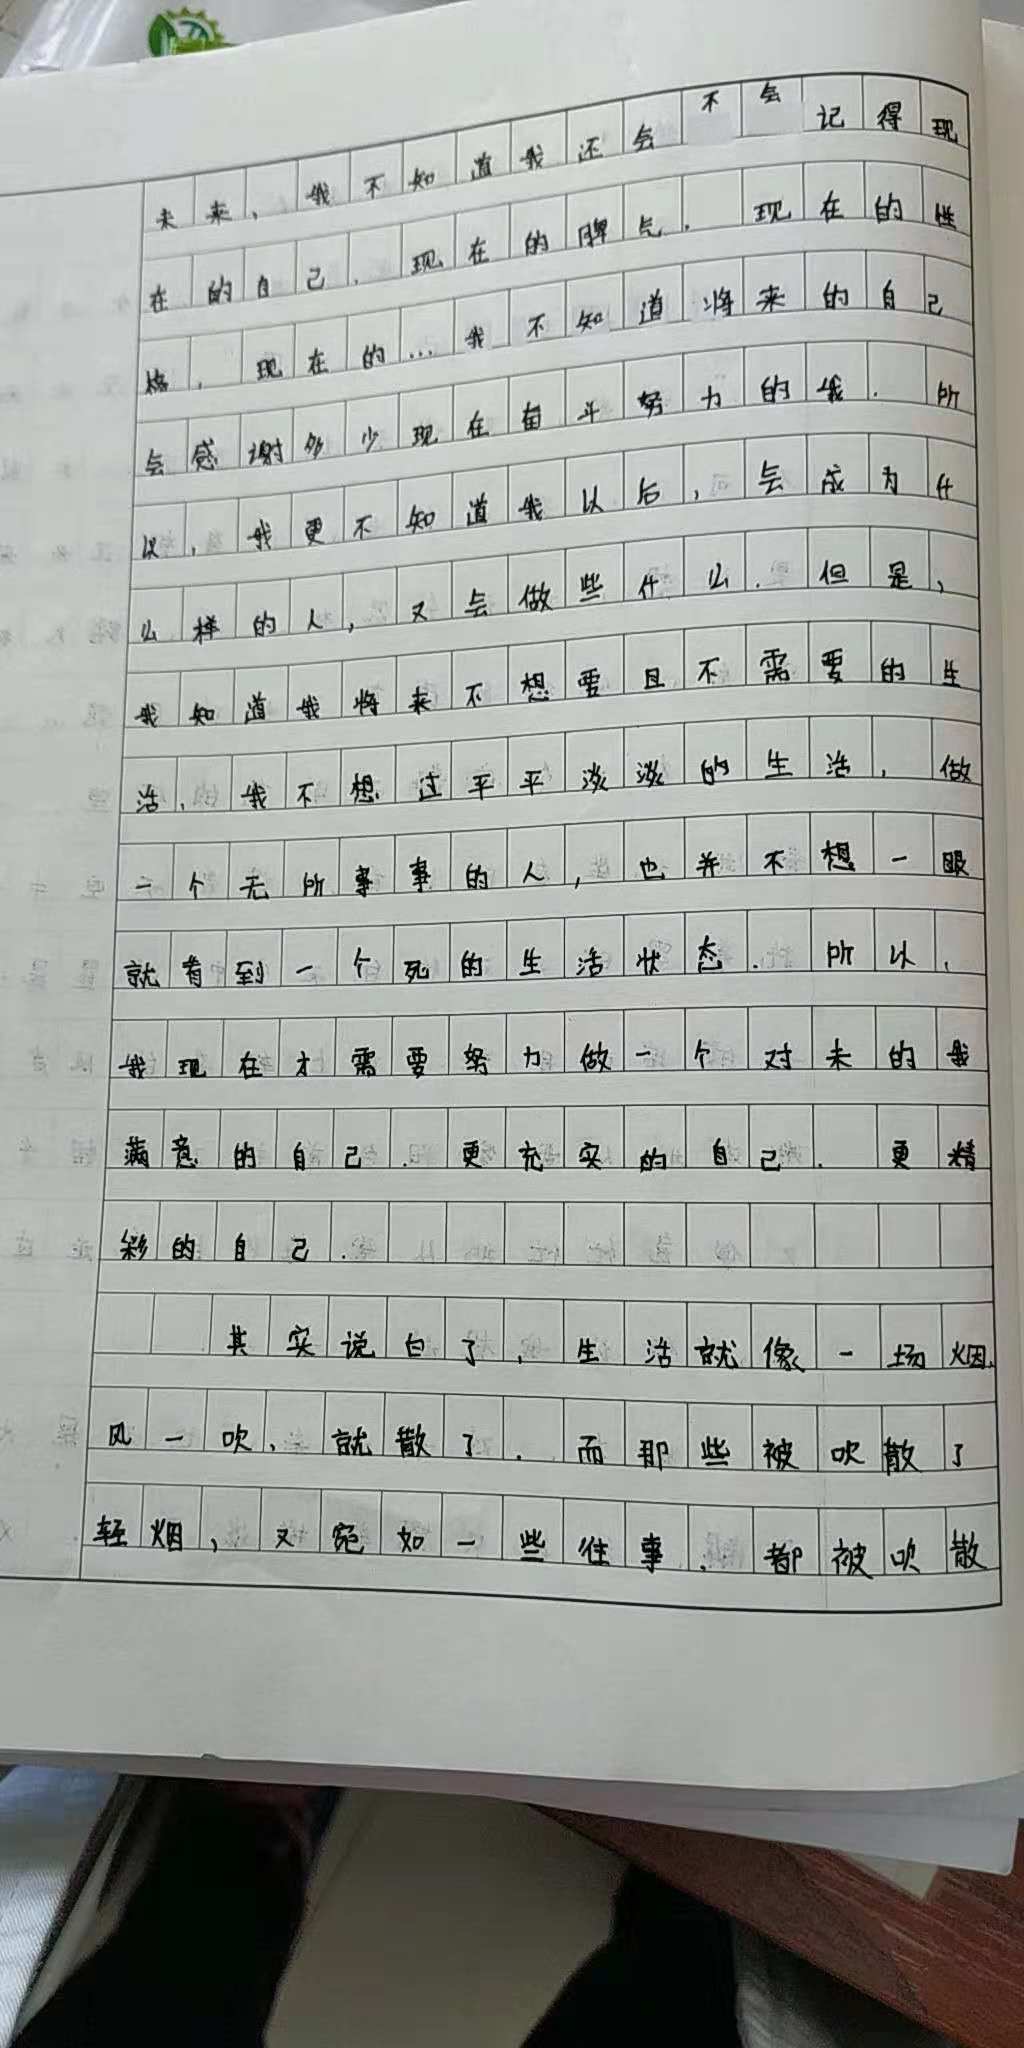 未来，我不知道我还会不会记得现
在的自己．现在的脾气．现在的性
格，现在的…我不知道将来的自己
会感谢多少现在奋斗努力的我．所
以，我更不知道我以后，会成为什
么样的人，又会做些什么．但是，
我知道我将来不想要且不需要的生
活，我不想过平平淡淡的生活，做
一个无所事事的人，也并不想一眼
就看到一个死的生活状态．所以，
我现在才需要努力做一个对未的我
满意的自己．更充实的自己．更精
彩的自己．
其实说白了，生活就像一场烟，
风一吹，就散了．而那些被吹散了
轻烟，又宛如一些往事．都被吹散